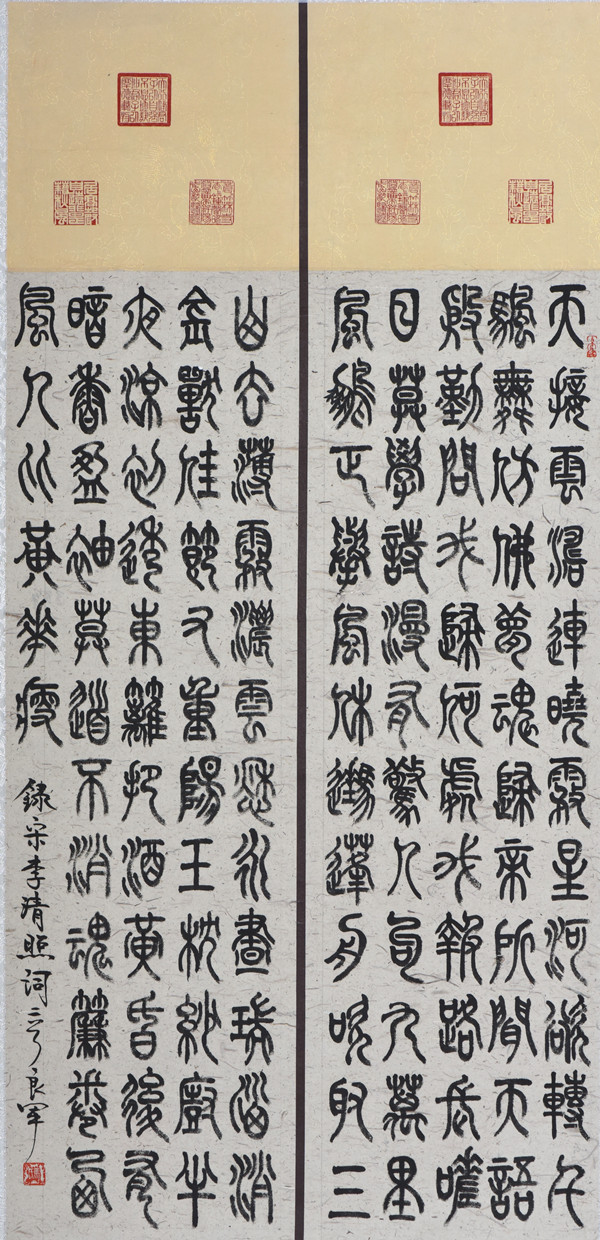 天接雲濤連曉霧星河欲轉千
颿舞仿佛夢魂歸帝所聞天語
殷勤問我歸何處我報路長嗟
日莫學詩漫有驚人句九萬里
風鵬正舉風休蓬舟吹取三
山去薄霧濃雲愁永晝瑞腦消
金獸佳節又重陽玉枕紗廚半
夜涼初透東籬把酒黃昏後有
暗香盈袖莫道不消魂簾卷西
風人比黃花瘦
錄宋李清照詞二首良軍